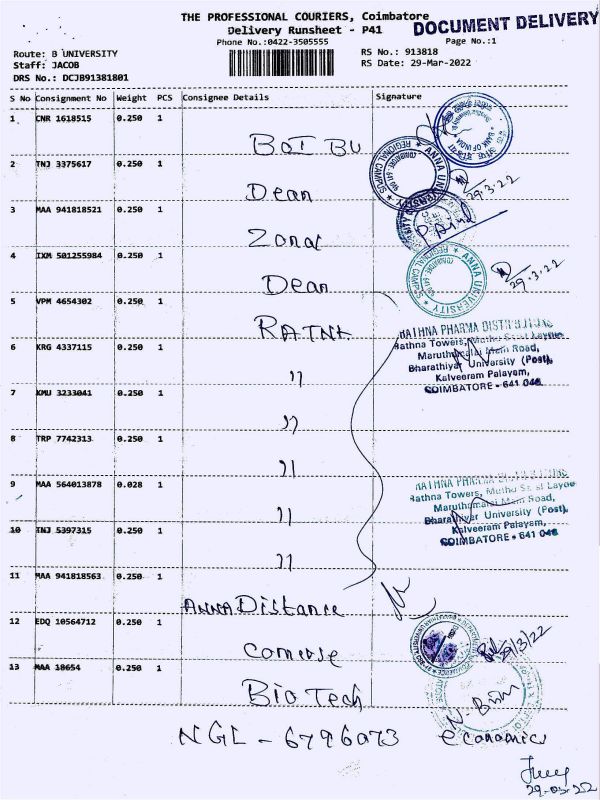 THE PROFESSIONAL COURIERS, Coimbatore
Delivery Runsheet - P41
DOCUMENT DELIVERY
Phone No.:0422-3505555
Page No.:1
Route: B UNIVERSITY
RS No.: 913818
Staff: JACOB
RS Date: 29-Mar-2022
DRS No.: DCJB91381801
S No Consignment No Weight PCS Consignee Details Signature
1 CNR 1618515 0.250 1
BOI BU
BANK OF INDIA
2 TNJ 3375617 0.250 1
Dean
ANNA UNIVERSITY REGIONAL CAMPUS
29.3.22
3 MAA 941818521 0.250 1
Zonal
4 IXM 501255984 0.250 1
Dean
ANNA UNIVERSITY REGIONAL CAMPUS COIMBATORE - 641 046
29.3.22
5 VPM 4654302 0.250 1
RATNA
RATHNA PHARMA DISTRIBUTORS
Rathna Towers, Muthu Layout
Maruthamalai Main Road,
Bharathiyar University (Post),
Kalveeram Palayam,
COIMBATORE - 641 046.
6 KRG 4337115 0.250 1
"
7 KMU 3233041 0.250 1
"
8 TRP 7742313 0.250 1
"
9 MAA 564013878 0.028 1
"
RATHNA PHARMA DISTRIBUTORS
Rathna Towers, Muthu Layout
Maruthamalai Main Road,
Bharathiyar University (Post),
Kalveeram Palayam,
COIMBATORE - 641 046
10 TNJ 5397315 0.250 1
"
11 MAA 941818563 0.250 1
ANNA Distance
12 EDQ 10564712 0.250 1
Comerse
29/3/22
13 MAA 18654 0.250 1
Bio Tech
NGL - 6796073 economics
29-03-22